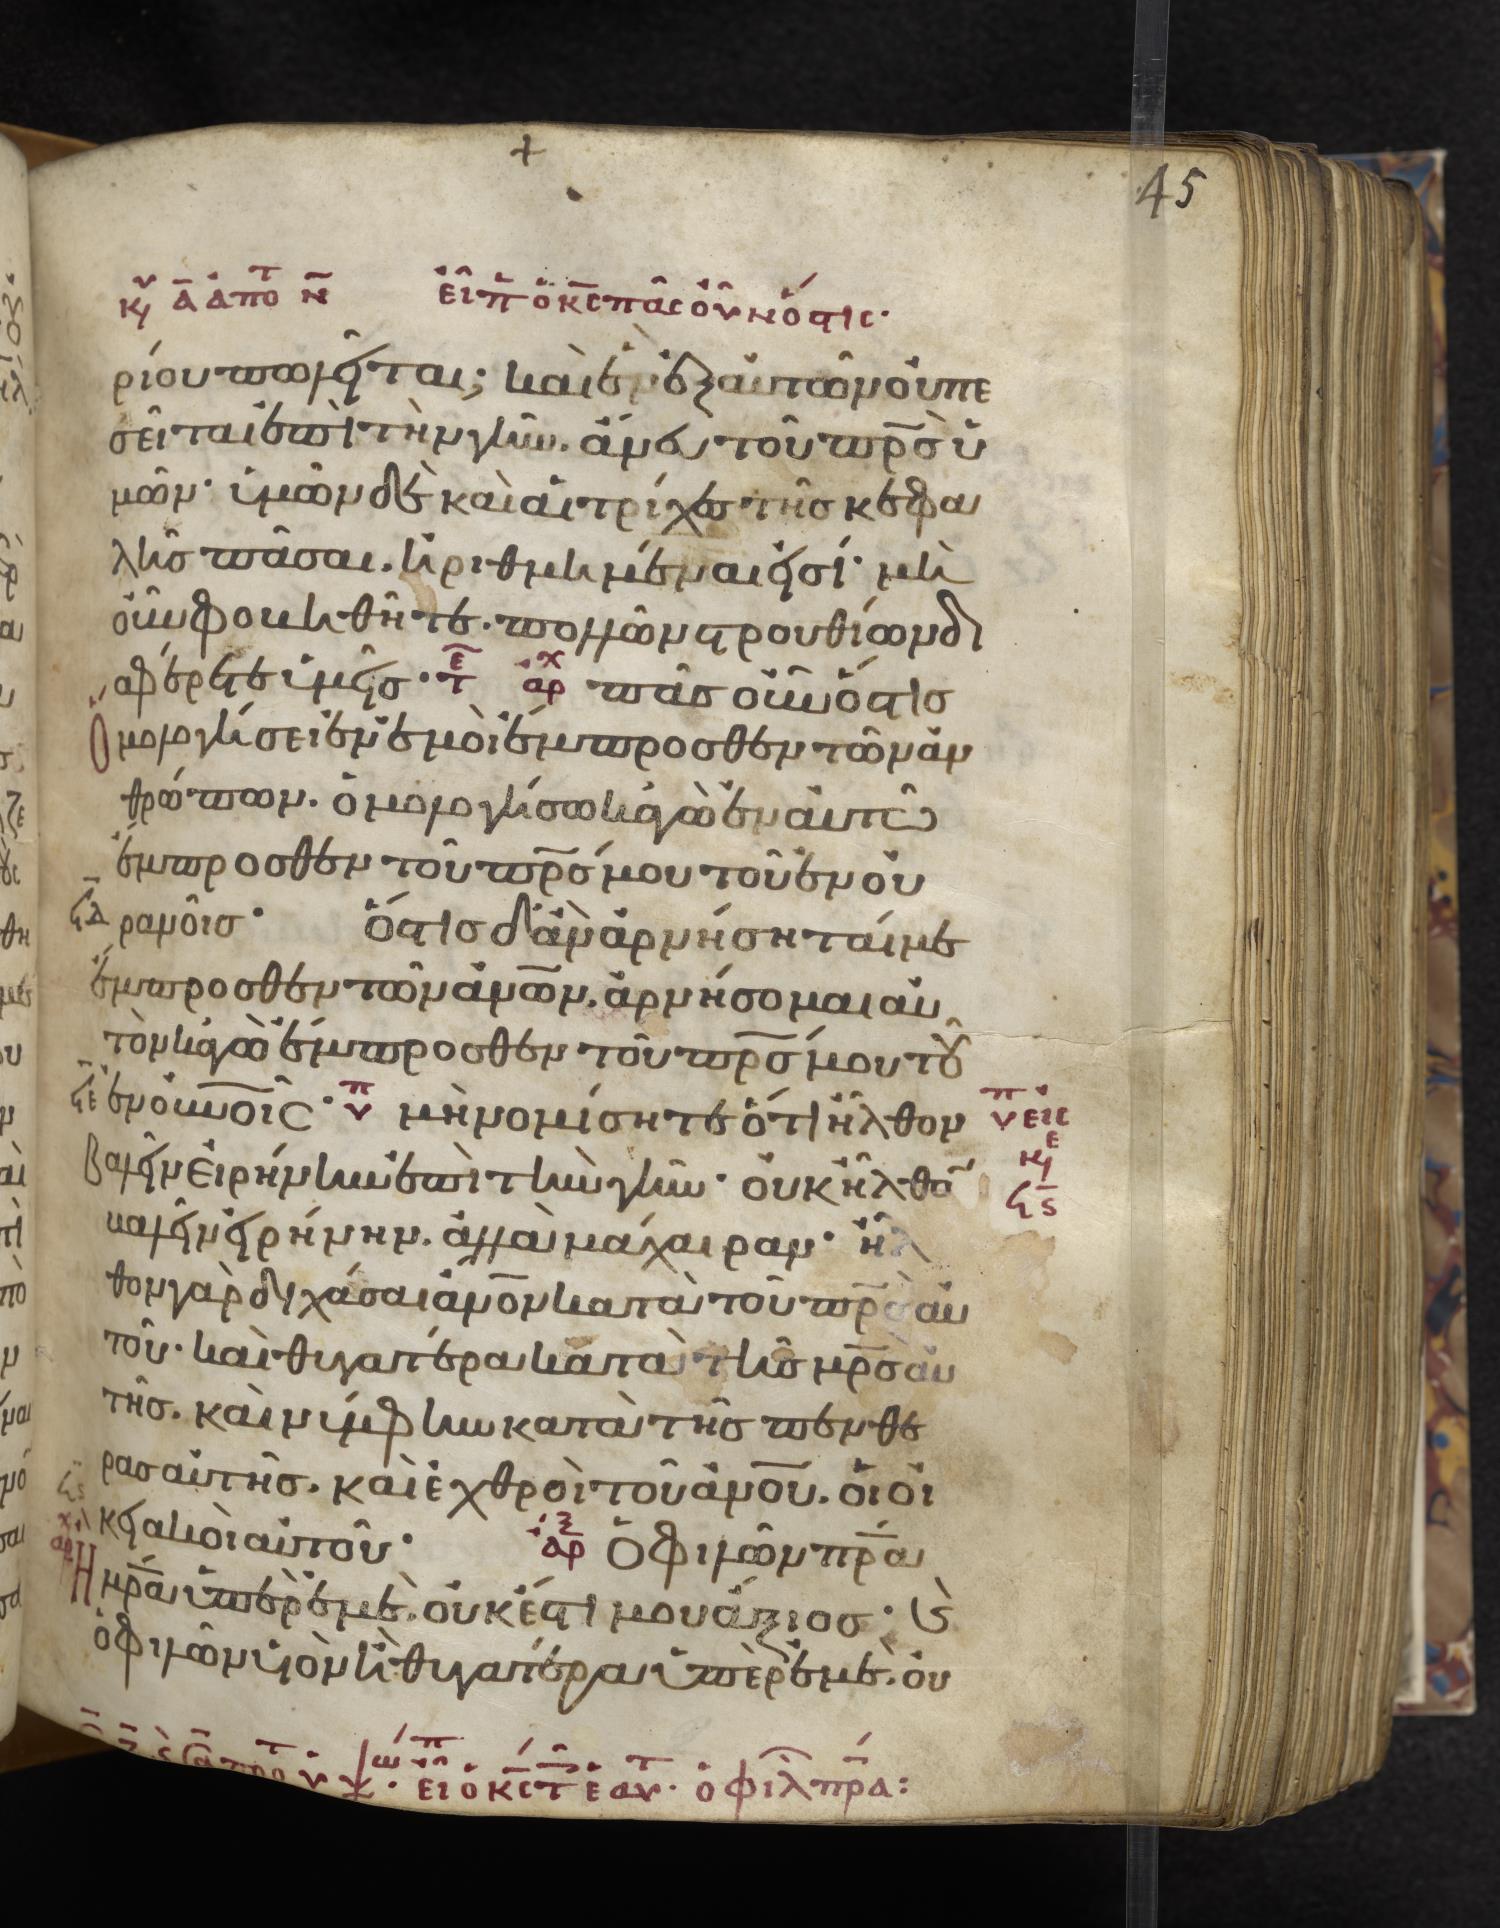 45
κυ Α ἀπὸ τ Ν εἶπ ὁ κς πᾶς οὖν ὅστις·
ρίου πωλεῖται; καὶ ἓν ἐξ αὐτῶν οὐ πε
σεῖται ἐπὶ τὴν γῆν. ἄνευ τοῦ πρς ὑ
μῶν· ὑμῶν δὲ καὶ αἱ τρίχες τῆς κεφα
λῆς πᾶσαι. ἠριθμημέναι εἰσί· μὴ
οὖν φοβηθῆτε. πολλῶν στρουθίων δι
αφέρετε ὑμεῖς· τε αρχ πᾶς οὖν ὅστις
ὁμολογήσει ἐν ἐμοὶ ἔμπροσθεν τῶν ἀν
θρώπων. ὁμολογήσω κἀγὼ ἐν αὐτῶ
ἔμπροσθεν τοῦ πρς μου τοῦ ἐν οὐ
ϟδ ρανοῖς· ὅστις δ' ἂν ἀρνήσηταί με
ἔμπροσθεν τῶν ἀνων. ἀρνήσομαι αὐ
τὸν κἀγὼ ἔμπροσθεν τοῦ πρς μου τοῦ
ϟε ἐν οὐνοις· υπ μὴ νομίσητε ὅτι ἦλθον υπ εις
βαλεῖν εἰρήνην ἐπὶ τὴν γῆν· οὐκ ἦλθον
βαλεῖν εἰρήνην. ἀλλὰ μάχαιραν· ἦλ
θον γὰρ διχάσαι ἀνον κατὰ τοῦ πρς αὐ
τοῦ· καὶ θυγατέρα κατὰ τῆς μρς αὐ
τῆς. καὶ νύμφην κατὰ τῆς πενθε
ρᾶς αὐτῆς. καὶ ἐχθροὶ τοῦ ἀνου. οἱ οἰ
κειακοὶ αὐτοῦ· αρξ Ὁ φιλῶν πρα
ἢ μρα ὑπὲρ ἐμέ. οὐκ ἔστι μου ἄξιος· καὶ
ὁ φιλῶν υἱὸν ἢ θυγατέρα ὑπὲρ ἐμέ. οὐ
εἶπ ὁ κς τ ἑαυτ· ὁ φιλ πρα: